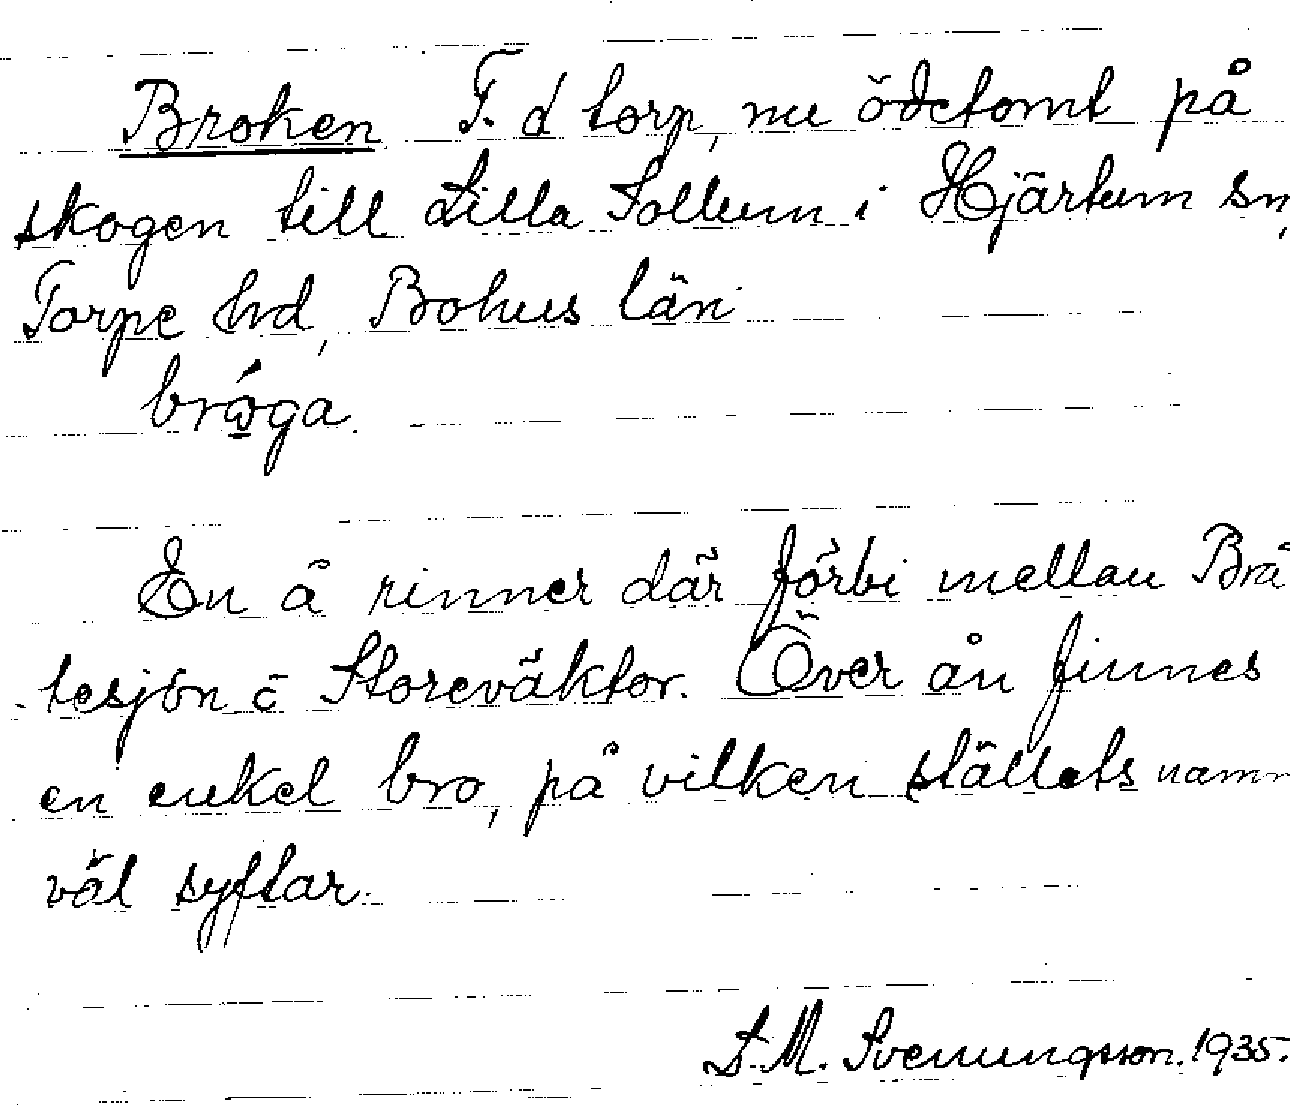 Broken F. d torp, nu ödetomt på
skogen till Lilla Sollum i Hjärtum sn,
Torpe hd, Bohus län
bróga.
En å rinner där förbi mellan Brä
tesjön o Storeväktor. Över ån finnes
en enkel bro, på vilken ställets namn
väl syftar.
S. M. Svenungsson. 1935.